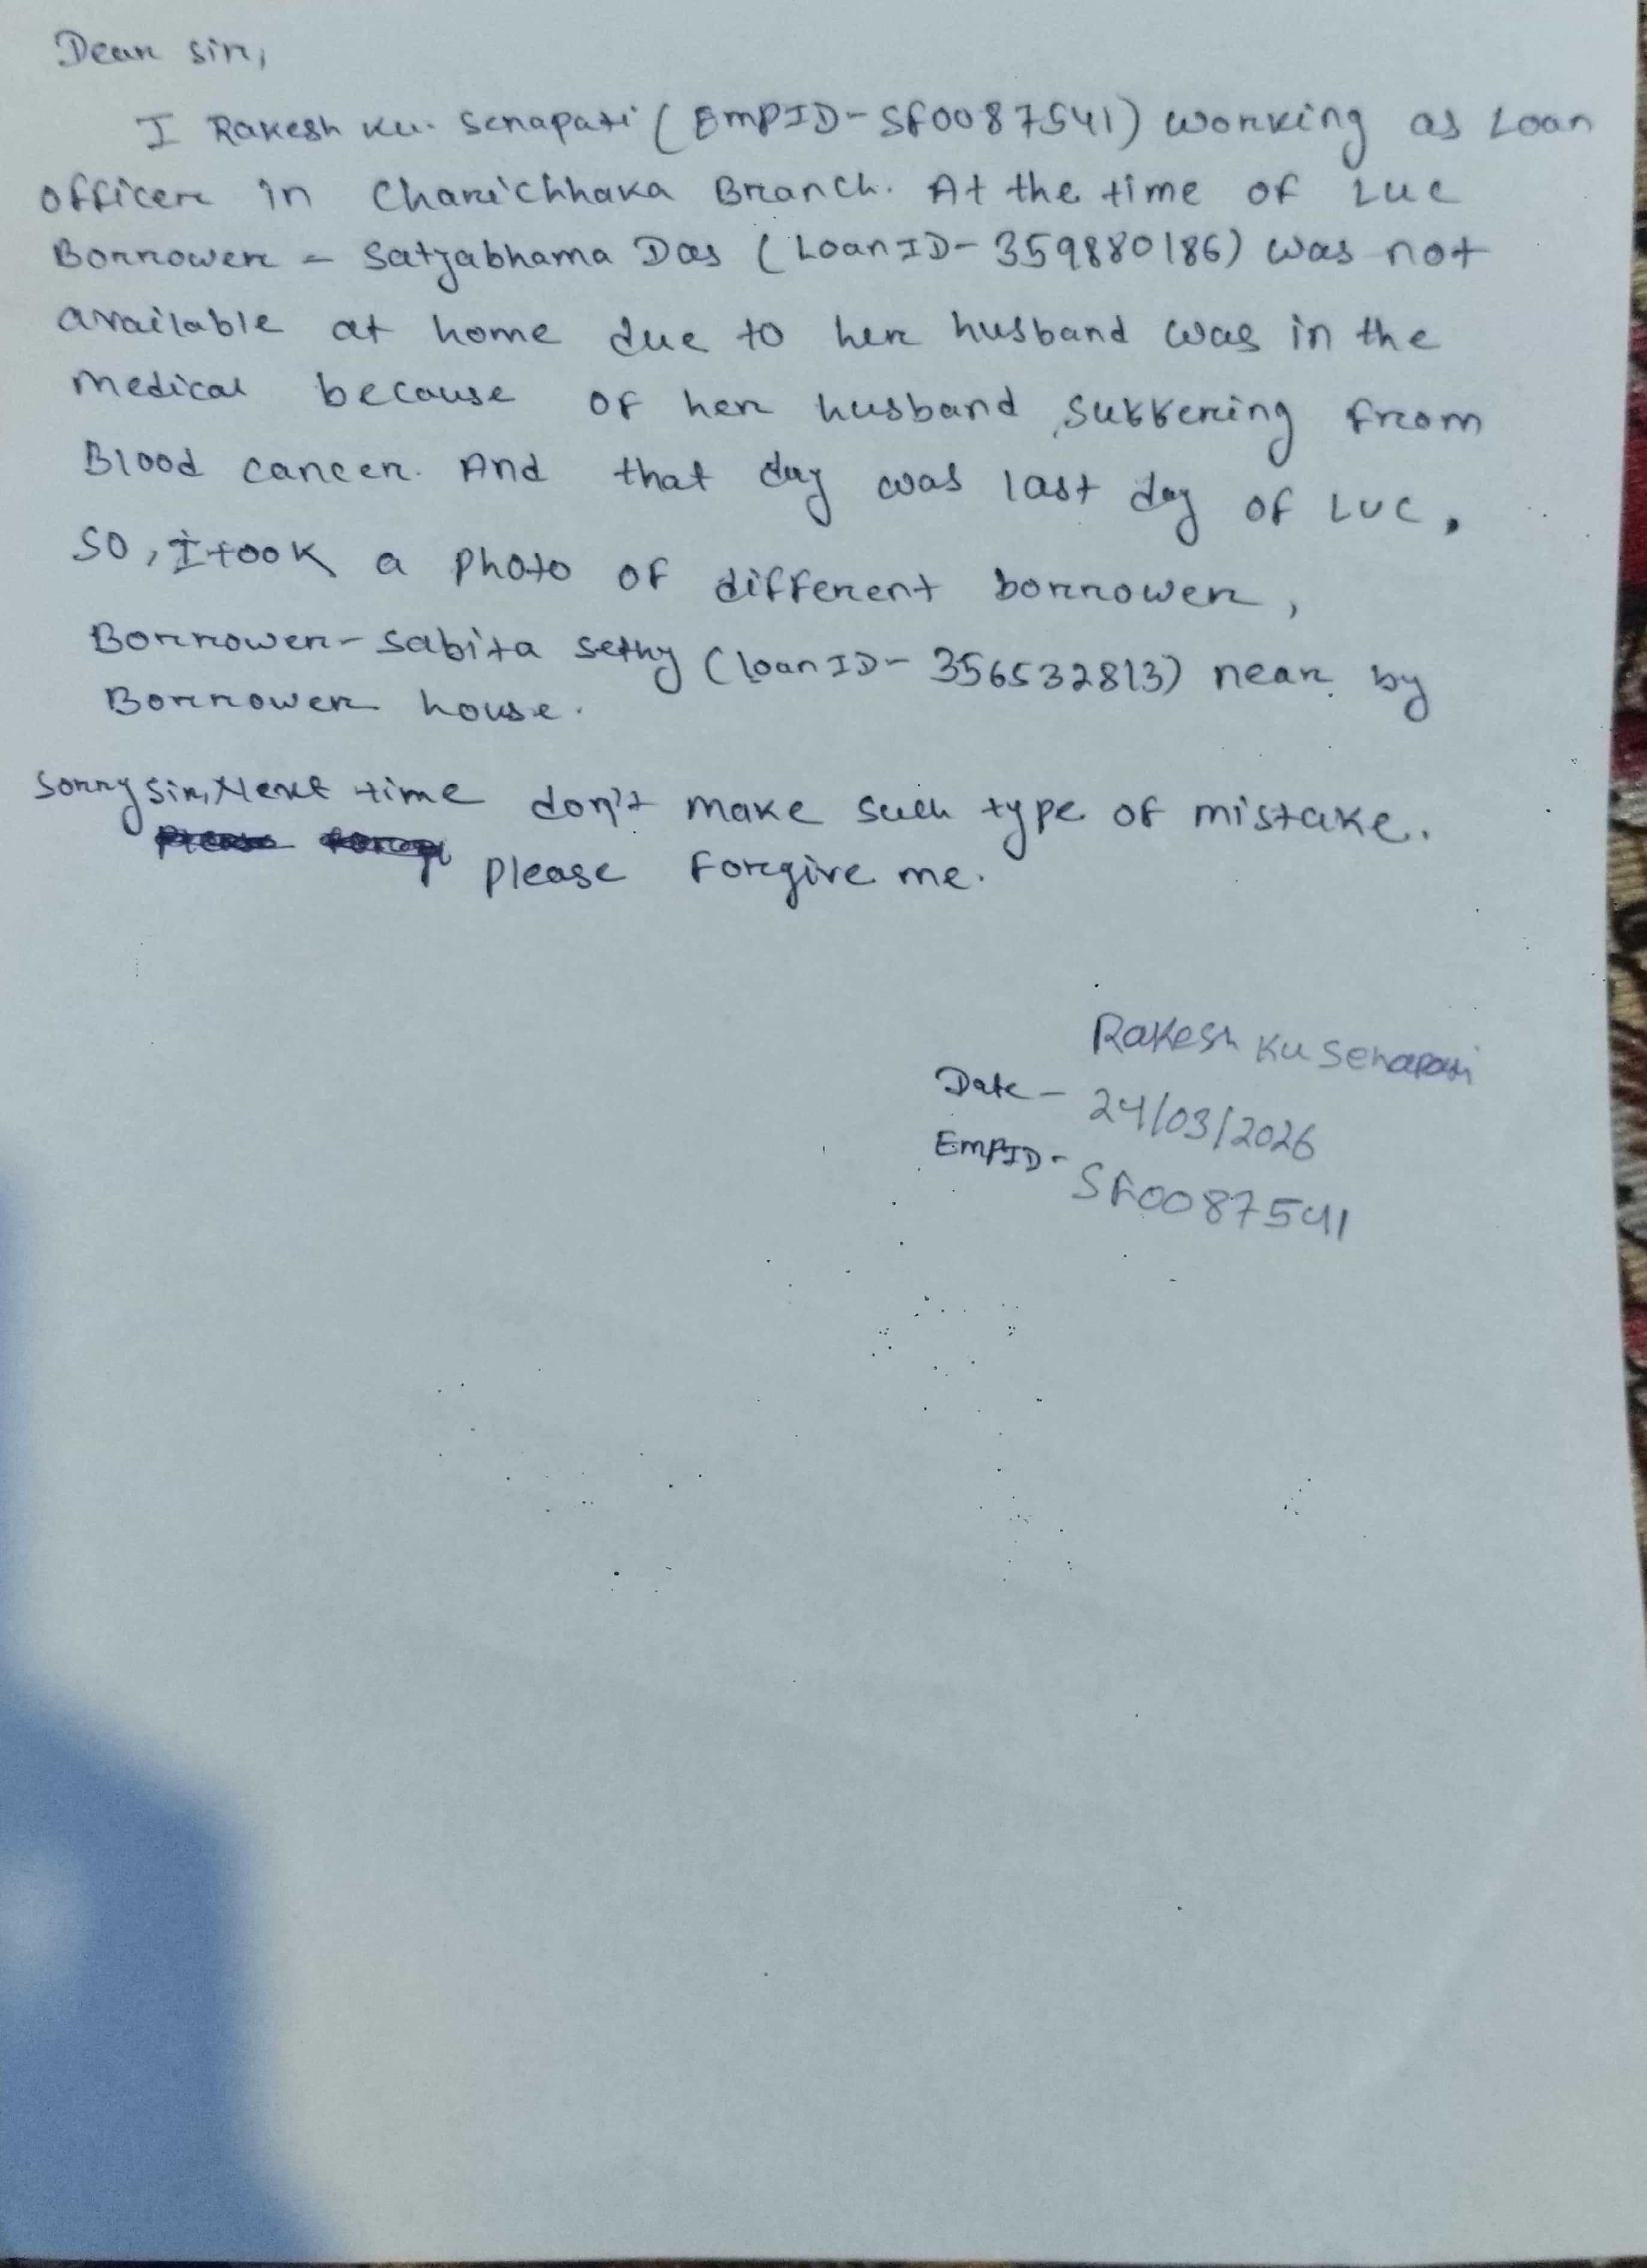 Dear sir,
I Rakesh Ku. Senapati (EmpID-SF0087541) working as Loan
officer in Charichhaka Branch. At the time of LUC
Borrower - Satyabhama Das (LoanID-359880186) was not
available at home due to her husband was in the
medical because of her husband suffering from
Blood cancer. And that day was last day of LUC.
SO, I took a photo of different borrower,
Borrower-Sabita Sethy (loanID-356532813) near by
Borrower house.
Sorry sir, Next time don't make such type of mistake.
please forgive me.
Rakesh Ku Senapati
Date - 24/03/2026
EmpID- SF0087541